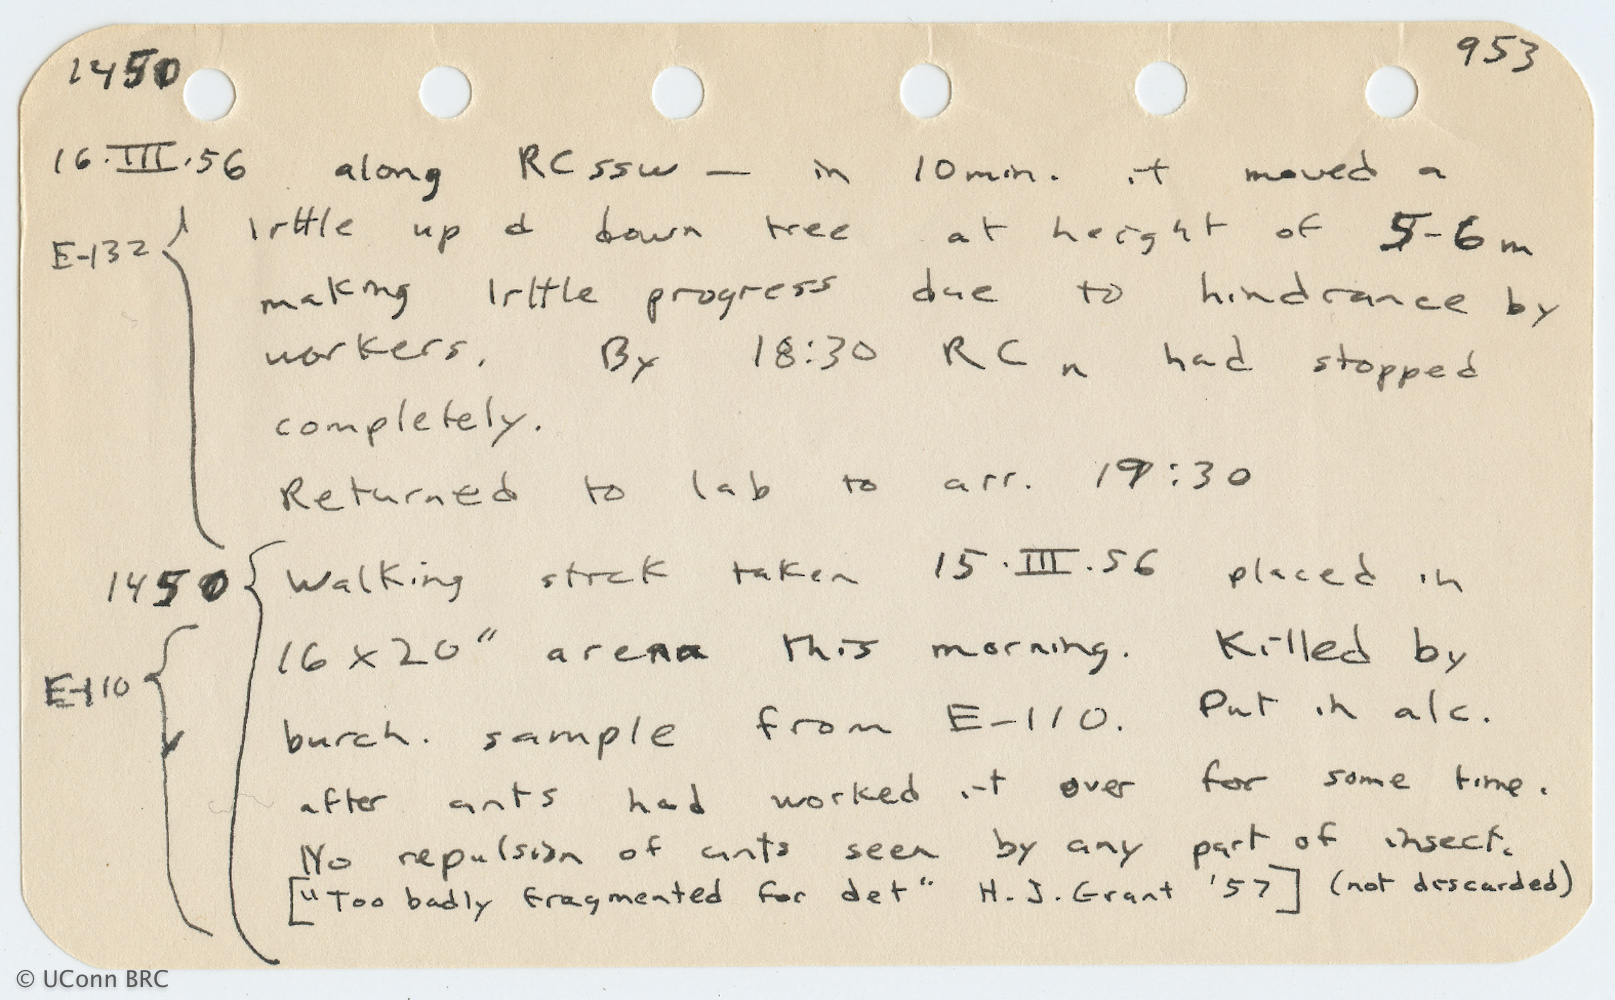 1450 953
16.III.56 along RCssw — in 10min. it moved a
E-132 little up & down tree at height of 5-6m
making little progress due to hindrance by
workers. By 18:30 RCn had stopped
completely.
Returned to lab to arr. 19:30
1450 Walking stick taken 15.III.56 placed in
16 x 20" arena this morning. Killed by
E-110 burch. sample from E-110. Put in alc.
after ants had worked it over for some time.
No repulsion of ants seen by any part of insect.
["Too badly fragmented for det" H.J. Grant '57] (not discarded)
© UConn BRC